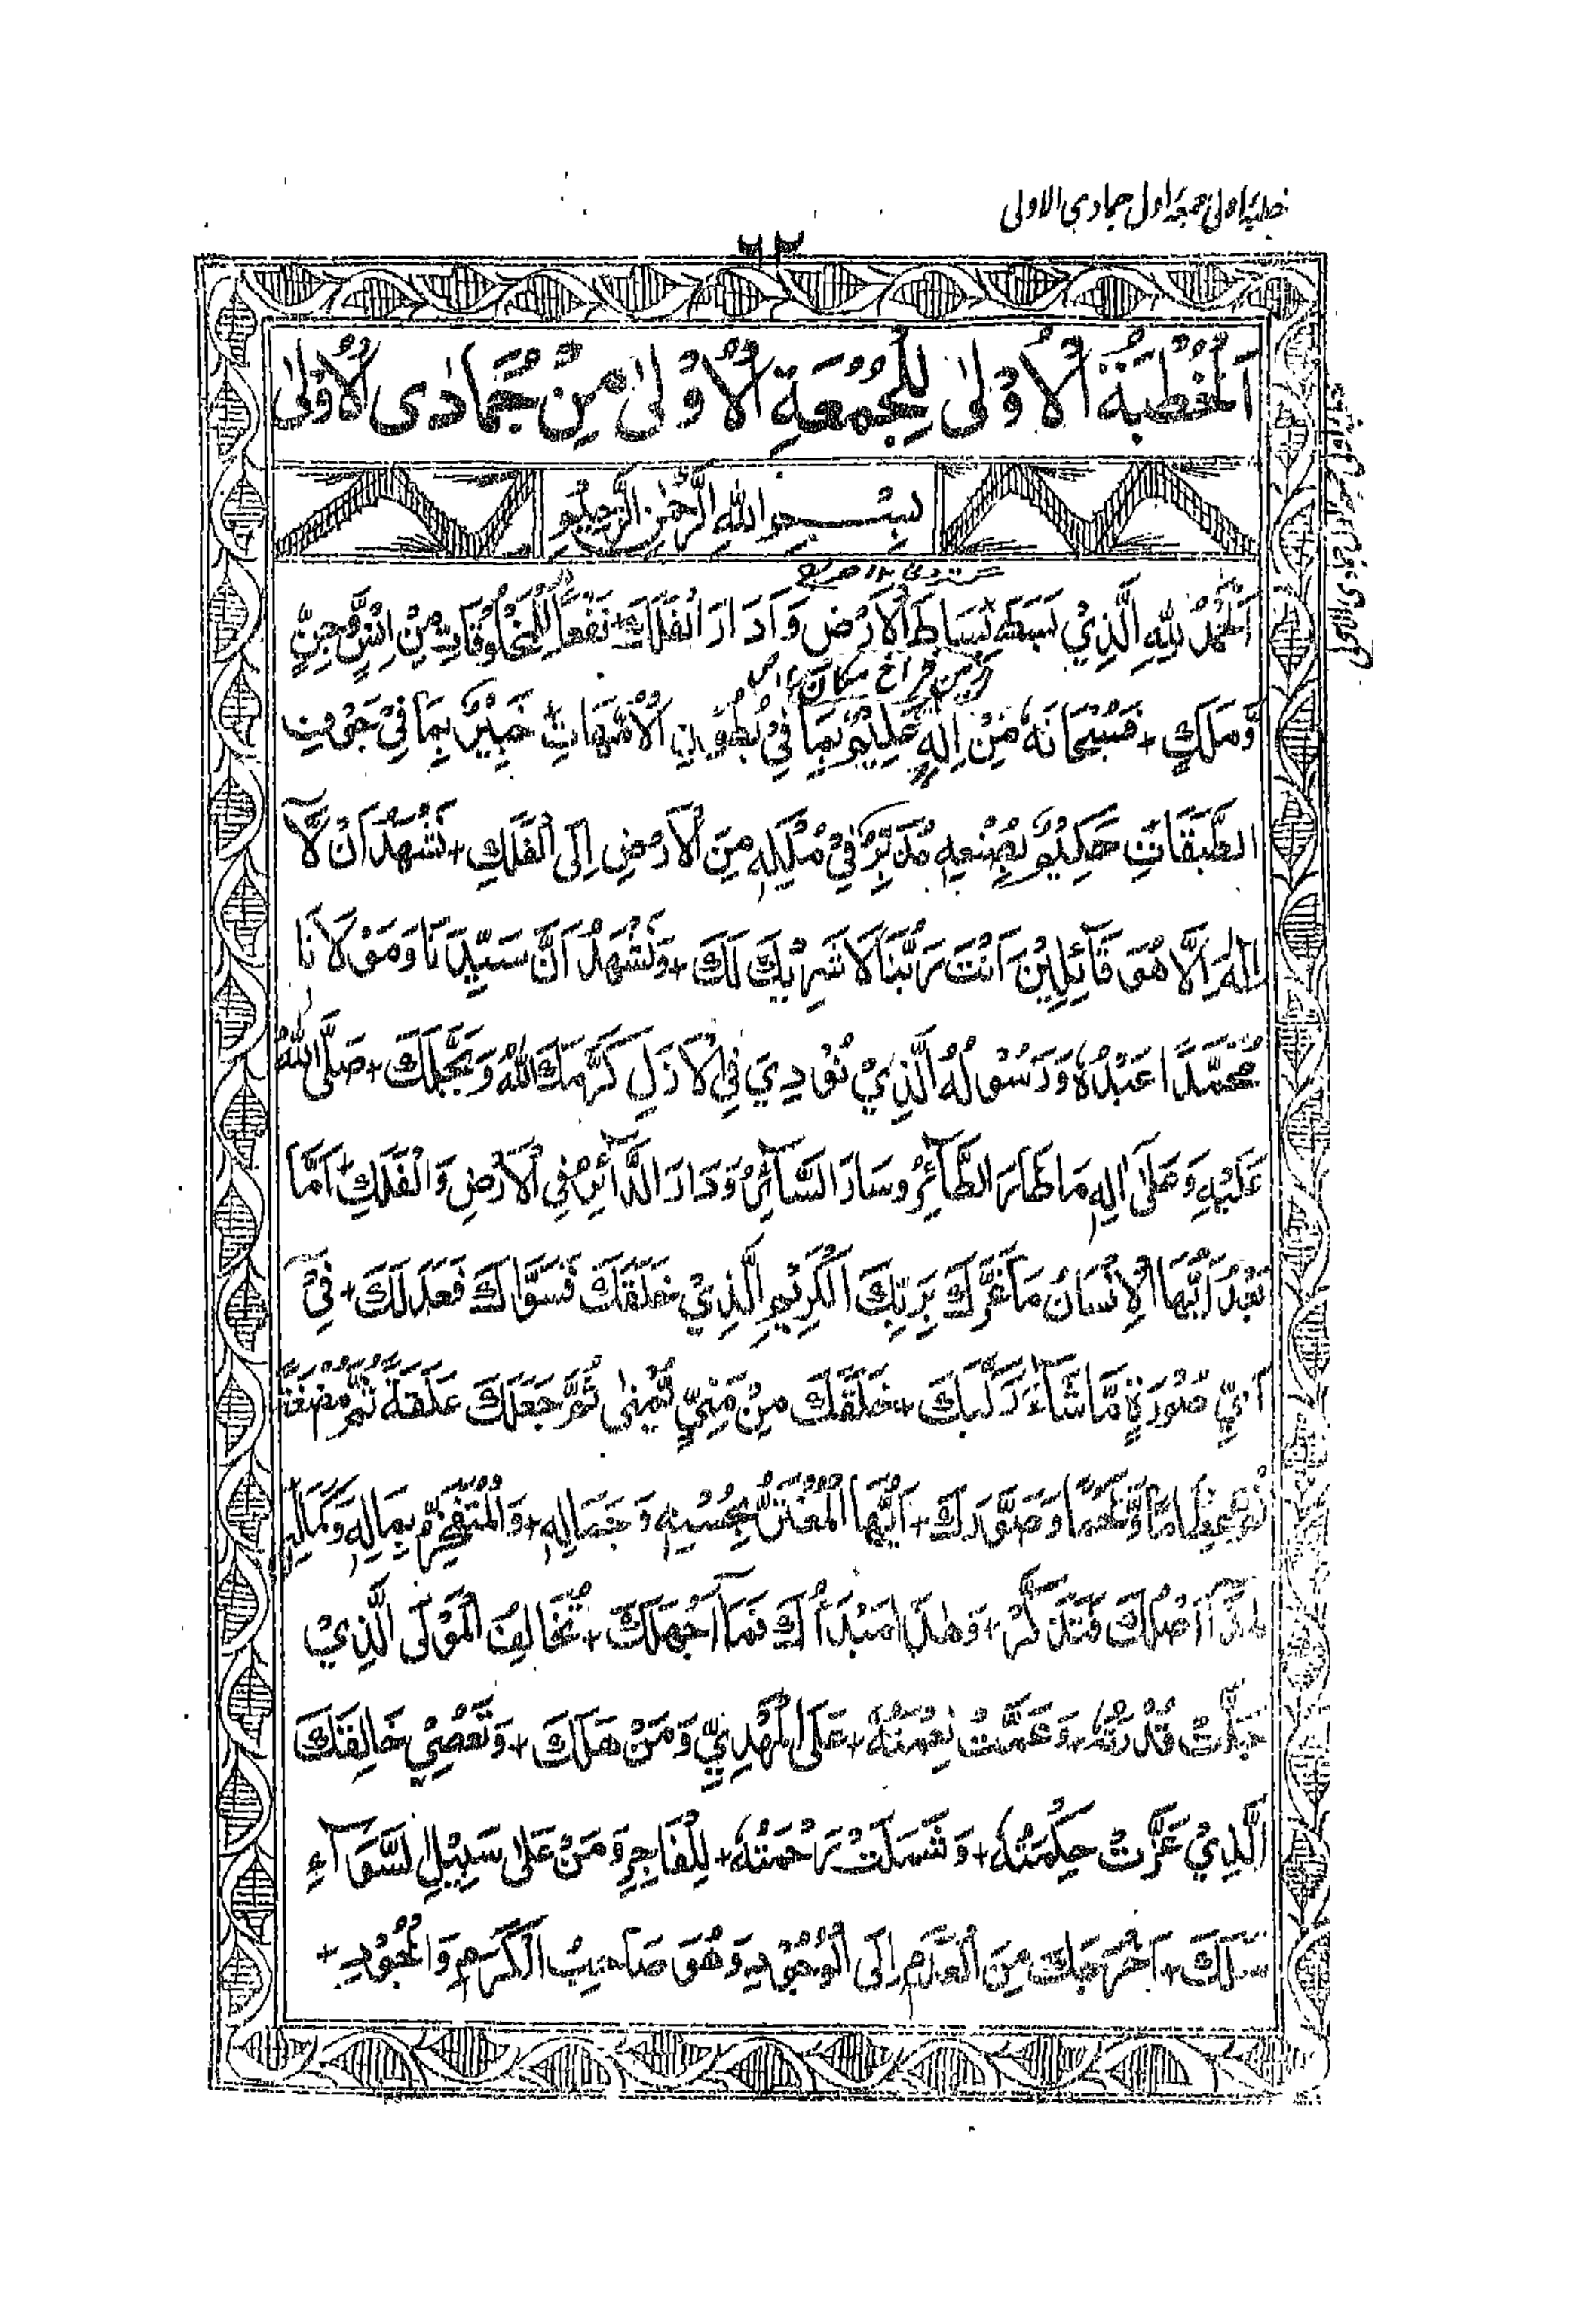 خطبۂ اولیٰ جمعۂ اول جمادی الاولی
٦٢
اَلْخُطْبَةُ الْاُوْلٰى لِلْجُمُعَةِ الْاُوْلٰى مِنْ جُمَادَى الْاُوْلٰى
بِسْمِ اللهِ الرَّحْمٰنِ الرَّحِيْمِ
اَلْحَمْدُ لِلّٰهِ الَّذِيْ بَسَطَ بَسَاطَ الْاَرْضِ وَاَدَارَ الْفَلَكَ + نَفْعًا لِّلْمَخْلُوْقَاتِ مِنْ اِنْسٍ وَّجِنٍّ
زمین فراخ
وَّمَلَكٍ + فَسُبْحَانَهٗ مِنْ اِلٰهٍ عَلِيْمٌ بِمَا فِيْ بُطُوْنِ الْاُمَّهَاتِ خَبِيْرٌ بِمَا فِيْ جَوْفِ
الطَّبَقَاتِ حَكِيْمٌ بِصُنْعِهٖ مُدَبِّرٌ فِيْ مُلْكِهٖ مِنَ الْاَرْضِ اِلَى الْفَلَكِ + نَشْهَدُ اَنْ لَّا
اِلٰهَ اِلَّا هُوَ قَآئِلِيْنَ اَنْتَ رَبُّنَا لَا شَرِيْكَ لَكَ + وَنَشْهَدُ اَنَّ سَيِّدَنَا وَمَوْلَانَا
مُحَمَّدًا عَبْدُهٗ وَرَسُوْلُهُ الَّذِيْ نُوْدِيَ فِي الْاَزَلِ كَرَّمَكَ اللهُ وَبَجَّلَكَ + صَلَّى اللهُ
عَلَيْهِ وَعَلٰى اٰلِهٖ مَا طَارَ الطَّآئِرُ وَسَارَ السَّآئِرُ وَدَارَ الدَّآئِرُ فِي الْاَرْضِ وَالْفَلَكِ + اَمَّا
بَعْدُ اَيُّهَا الْاِنْسَانُ مَا غَرَّكَ بِرَبِّكَ الْكَرِيْمِ الَّذِيْ خَلَقَكَ فَسَوَّاكَ فَعَدَلَكَ + فِيْٓ
اَيِّ صُوْرَةٍ مَّا شَآءَ رَكَّبَكَ + خَلَقَكَ مِنْ مَّنِيٍّ يُّمْنٰى ثُمَّ جَعَلَكَ عَلَقَةً ثُمَّ مُضْغَةً
ثُمَّ عِظَامًا وَّلَحْمًا وَصَوَّرَكَ + اَيُّهَا الْمُغْتَرُّ بِحُسْنِهٖ وَجَمَالِهٖ + وَالْمُتَفَخِّرُ بِمَالِهٖ وَكَمَالِهٖ
هٰذَا اَصْلُكَ فَتَذَكَّرْ + وَهٰذَا مَبْدَأُكَ فَمَآ اَجْهَلَكَ + تُخَالِفُ الْمَوْلَى الَّذِيْ
جَلَّتْ قُدْرَتُهٗ + وَعَمَّتْ نِعْمَتُهٗ + عَلَى الْمَهْدِيِّ وَمَنْ هَلَكَ + وَتَعْصِيْ خَالِقَكَ
الَّذِيْ عَزَّتْ حِكْمَتُهٗ + وَشَمَلَتْ رَحْمَتُهٗ + لِلْفَاجِرِ وَمَنْ عَلٰى سَبِيْلِ السَّوَآءِ
سَلَكَ + اَخْرَجَكَ مِنَ الْعَدَمِ اِلَى الْوُجُوْدِ وَهُوَ صَاحِبُ الْكَرَمِ وَالْجُوْدِ +